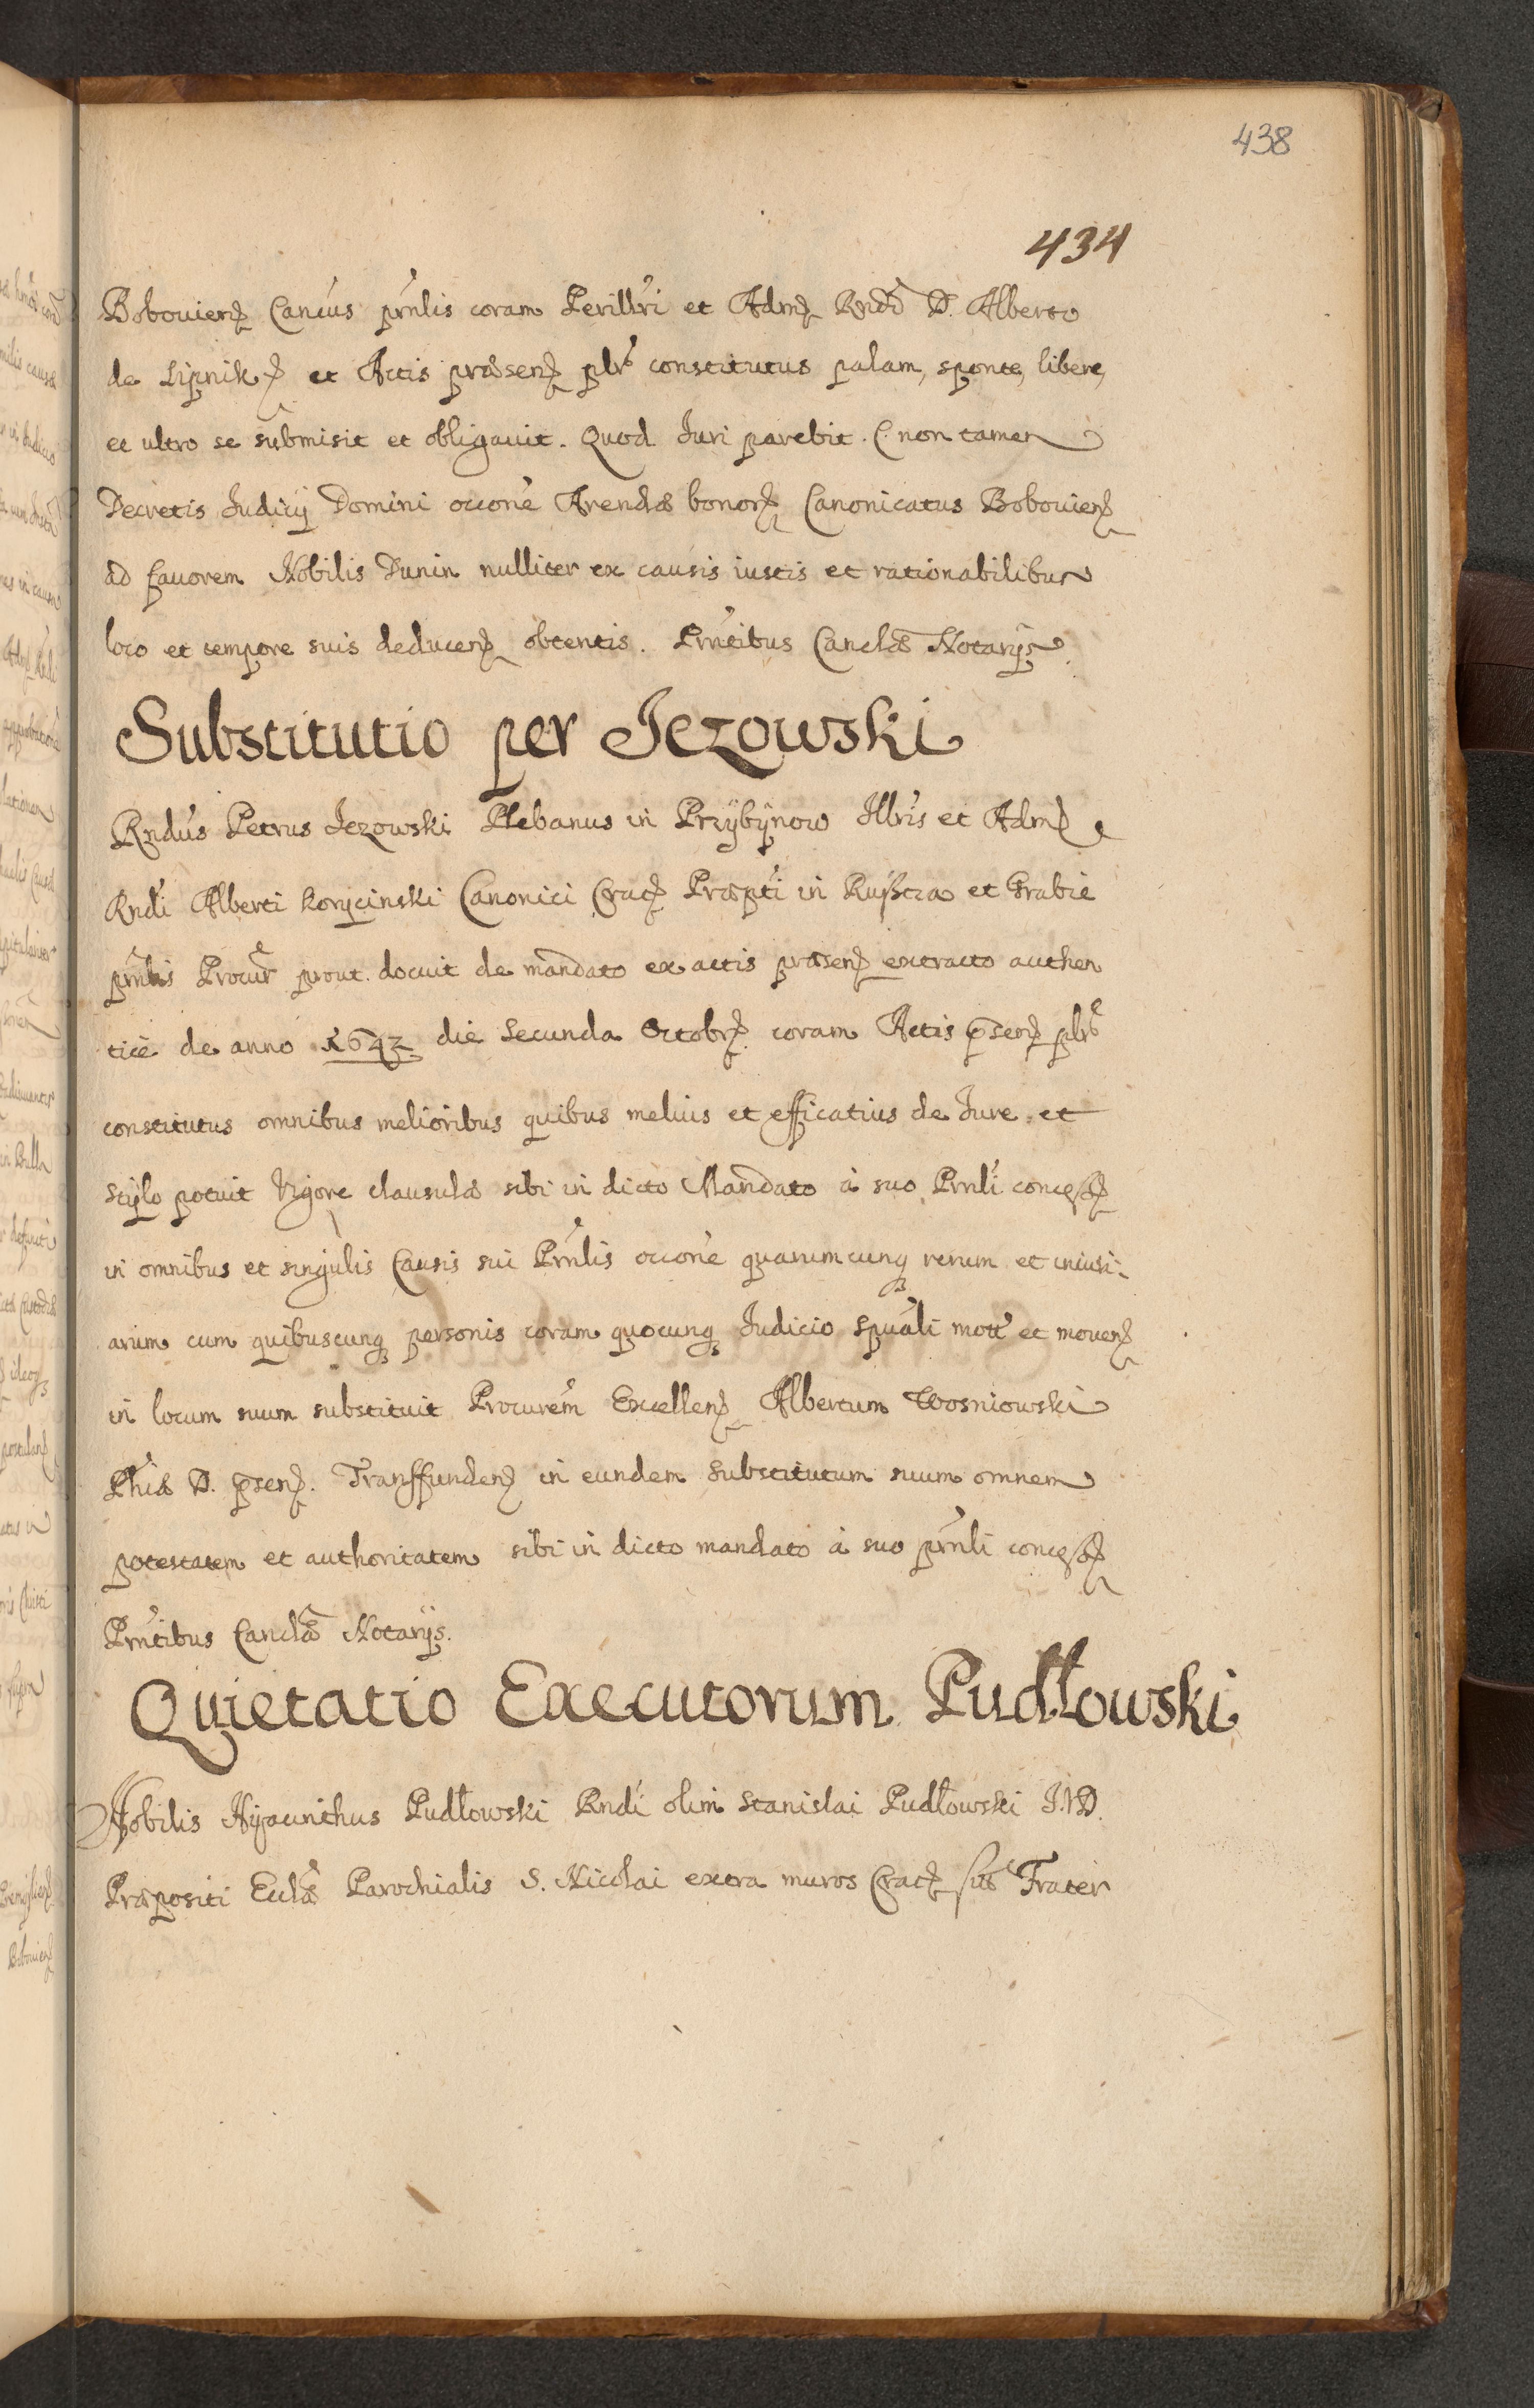 438
434
Bobouien Cancus prnlis coram Perillri et Adm Rndo D. Alberto
de Lipnik et Actis præsen plr constitutus palam, sponte, libere,
et ultro se submisit et obligauit. Quod Iuri parebit. C. non tamen
Decretis Iudicij Domini occone Arendæ bonor Canonicatus Bobouien
ad fauorem Nobilis Dunin nulliter ex causis iustis et rationabilibus
loco et tempore suis deducen obtentis. Prntibus Canclæ Notarijs
Substitutio per Iezowski
Rndus Petrus Iezowski Plebanus in Przÿbÿnow Illris et Adm
Rndi Alberti Korycinski Canonici Crac Præpti in Ruszcza et Grabie
prnlis Procur prout docuit de mandato ex actis præsen extracto authen
tice de anno 1643 die Secunda Octobr coram Actis psen plr
constitutus omnibus melioribus quibus melius et efficatius de Iure et
stÿlo potuit Vigore clausulæ sibi in dicto Mandato à suo Prnli concess
in omnibus et singulis Causis sui Prnlis occone quarumcunq rerum et iniuri-
arum cum quibuscunq personis coram quocunq Iudicio spuali mott et mouen
in locum suum substituit Procurem Excellen Albertum Wosniowski
Phiæ D. psen. Transfunden in eundem Substitutum suum omnem
potestatem et authoritatem sibi in dicto mandato à suo prnli concess
Prntibus Canclæ Notarÿs.
Quietatio Executorum Pudłowski
Nobilis Hyacinthus Pudłowski Rndi olim Stanislai Pudłowski I.V.D.
Præpositi Ecclæ Parochialis S. Nicolai extra muros Crac Frater